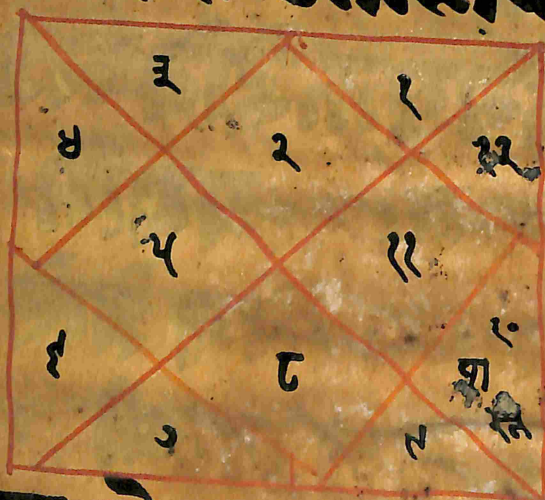 ३ १
४ २ १२
५ ११
१०
६ ८
७ ९